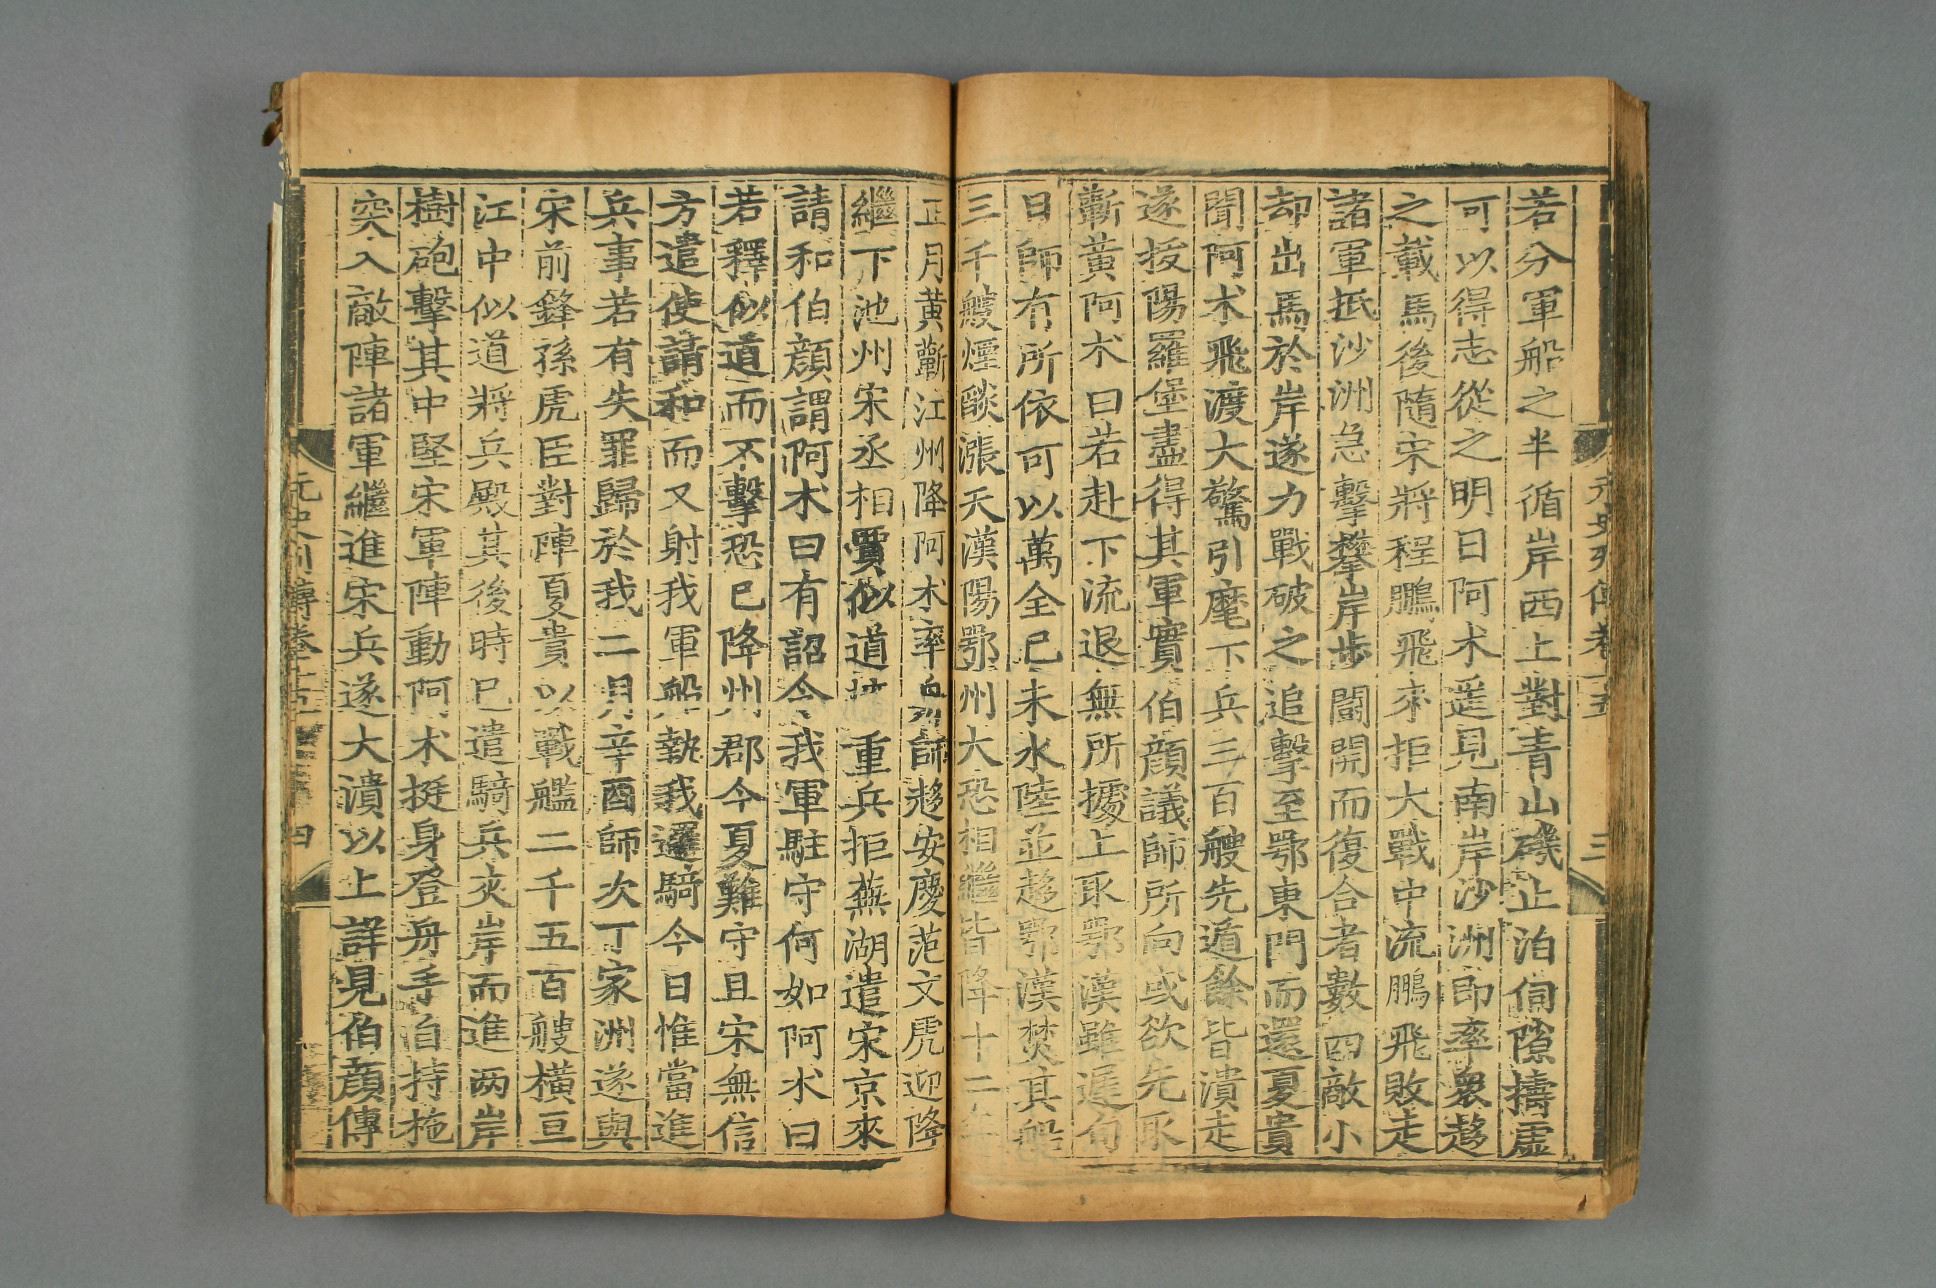 元史列傳卷十五
三
若分軍船之半循岸西上對青山磯止泊伺隙擣虛
可以得志從之明日阿朮遥見南岸沙洲即率衆趍
之載馬後隨宋將程鵬飛來拒大戰中流鵬飛敗走
諸軍抵沙洲急擊攀岸步鬭開而復合者數四敵小
却出馬於岸遂力戰破之追擊至鄂東門而還夏貴
聞阿朮飛渡大驚引麾下兵三百艘先遁餘皆潰走
遂拔陽羅堡盡得其軍實伯顏議師所向或欲先取
蘄黃阿朮曰若赴下流退無所據上取鄂漢雖遲旬
日師有所依可以萬全已未水陸並趍鄂漢焚其船
三千艘煙燄漲天漢陽鄂州大恐相繼皆降十二年
正月黃蘄江州降阿朮率師趍安慶范文虎迎降
繼下池州宋丞相賈似道 重兵拒蕪湖遣宋京來
請和伯顏謂阿朮曰有詔令我軍駐守何如阿朮曰
若釋似道而不擊恐已降州郡今夏難守且宋無信
方遣使請和而又射我軍船執我邏騎今日惟當進
兵事若有失罪歸於我二月辛酉師次丁家洲遂與
宋前鋒孫虎臣對陣夏貴以戰艦二千五百艘橫亘
江中似道將兵殿其後時已遣騎兵夾岸而進两岸
樹砲擊其中堅宋軍陣動阿朮挺身登舟手自持拖
突入敵陣諸軍繼進宋兵遂大潰以上詳見伯顏傳
元史列傳卷十五
四